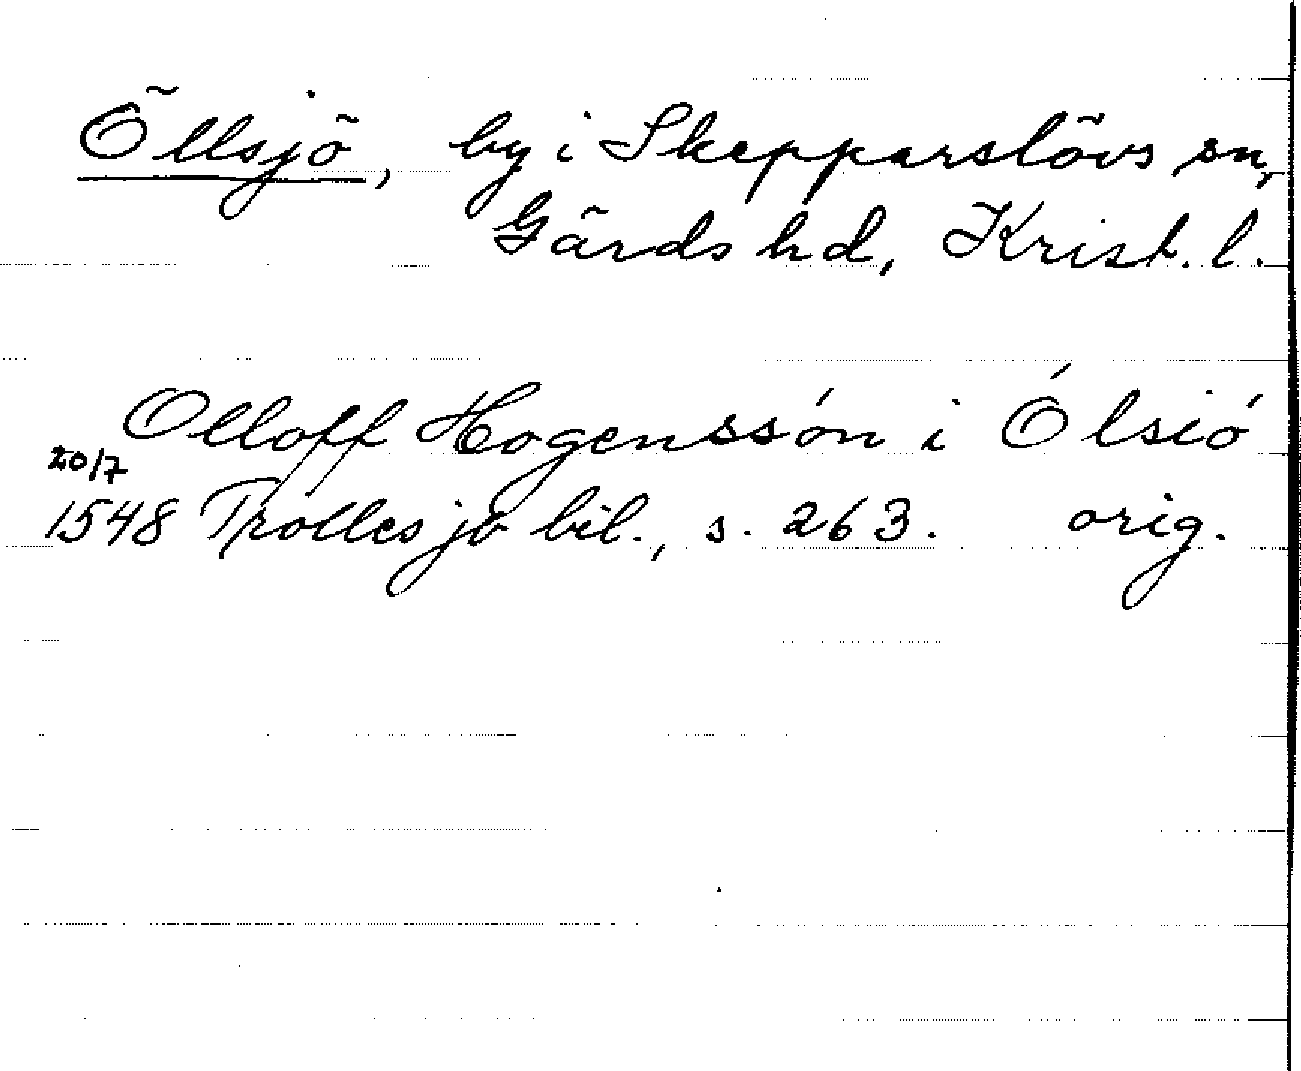 Öllsjö, by i Skepparslövs sn,
Gärds hd, Krist. l.
Olloff Hogenssón i Ólsió
20/7
1548 Trollesjö bil., s. 263. orig.